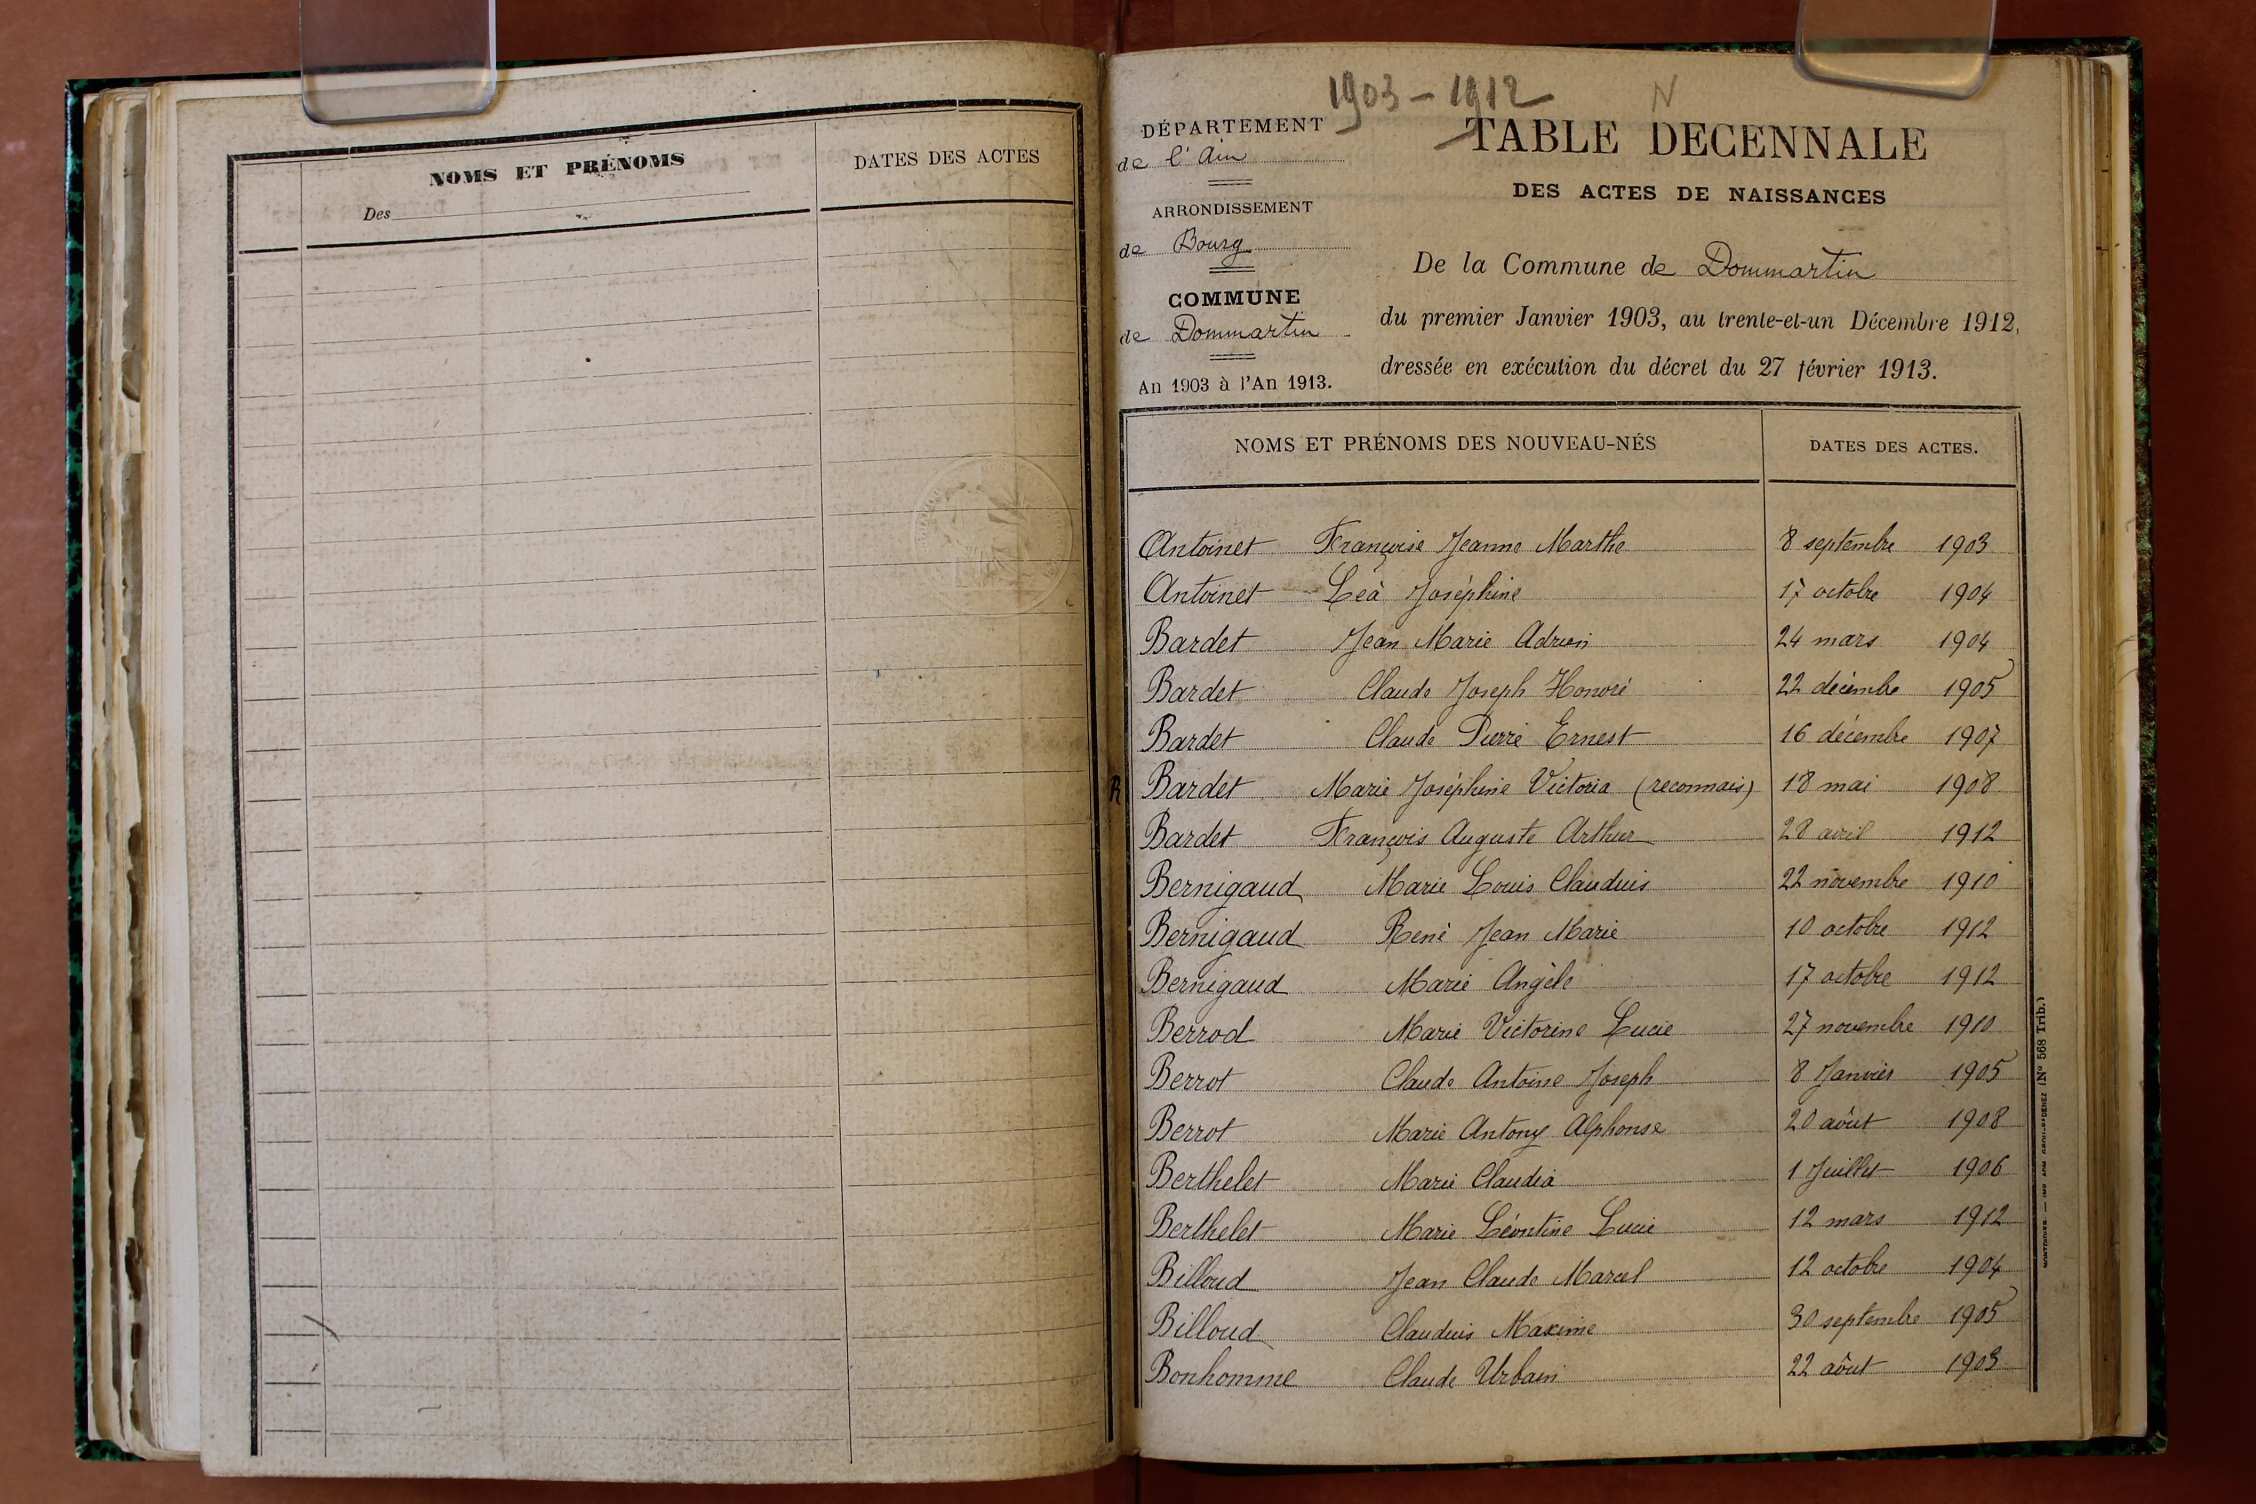 NOMS ET PRÉNOMS
DATES DES ACTES
Des
1903 - 1912 N
DÉPARTEMENT
de l'Ain
ARRONDISSEMENT
de Bourg
COMMUNE
de Dommartin
An 1903 à l'An 1913.
TABLE DECENNALE
DES ACTES DE NAISSANCES
De la Commune de Dommartin
du premier Janvier 1903, au trente-et-un Décembre 1912,
dressée en exécution du décret du 27 février 1913.
NOMS ET PRÉNOMS DES NOUVEAU-NÉS
DATES DES ACTES.
Antoinet Françoise Jeanne Marthe 8 septembre 1903
Antoinet Léà Joséphine 17 octobre 1904
Bardet Jean Marie Adrien 24 mars 1904
Bardet Claude Joseph Honoré 22 décembre 1905
Bardet Claude Pierre Ernest 16 décembre 1907
R Bardet Marie Joséphine Victoria (reconnais) 18 mai 1908
Bardet François Auguste Arthur 28 avril 1912
Bernigaud Marie Louis Claudius 22 novembre 1910
Bernigaud René Jean Marie 10 octobre 1912
Bernigaud Marie Angèle 17 octobre 1912
Berrod Marie Victorine Lucie 27 novembre 1910
Berrot Claude Antoine Joseph 8 Janvier 1905
Berrot Marie Antony Alphonse 20 aôut 1908
Berthelet Marie Claudia 1 Juillet 1906
Berthelet Marie Léontine Lucie 12 mars 1912
Billoud Jean Claude Marcel 12 octobre 1904
Billoud Claudius Maxime 30 septembre 1905
Bonhomme Claude Urbain 22 aôut 1903
(No 568 Trib.)